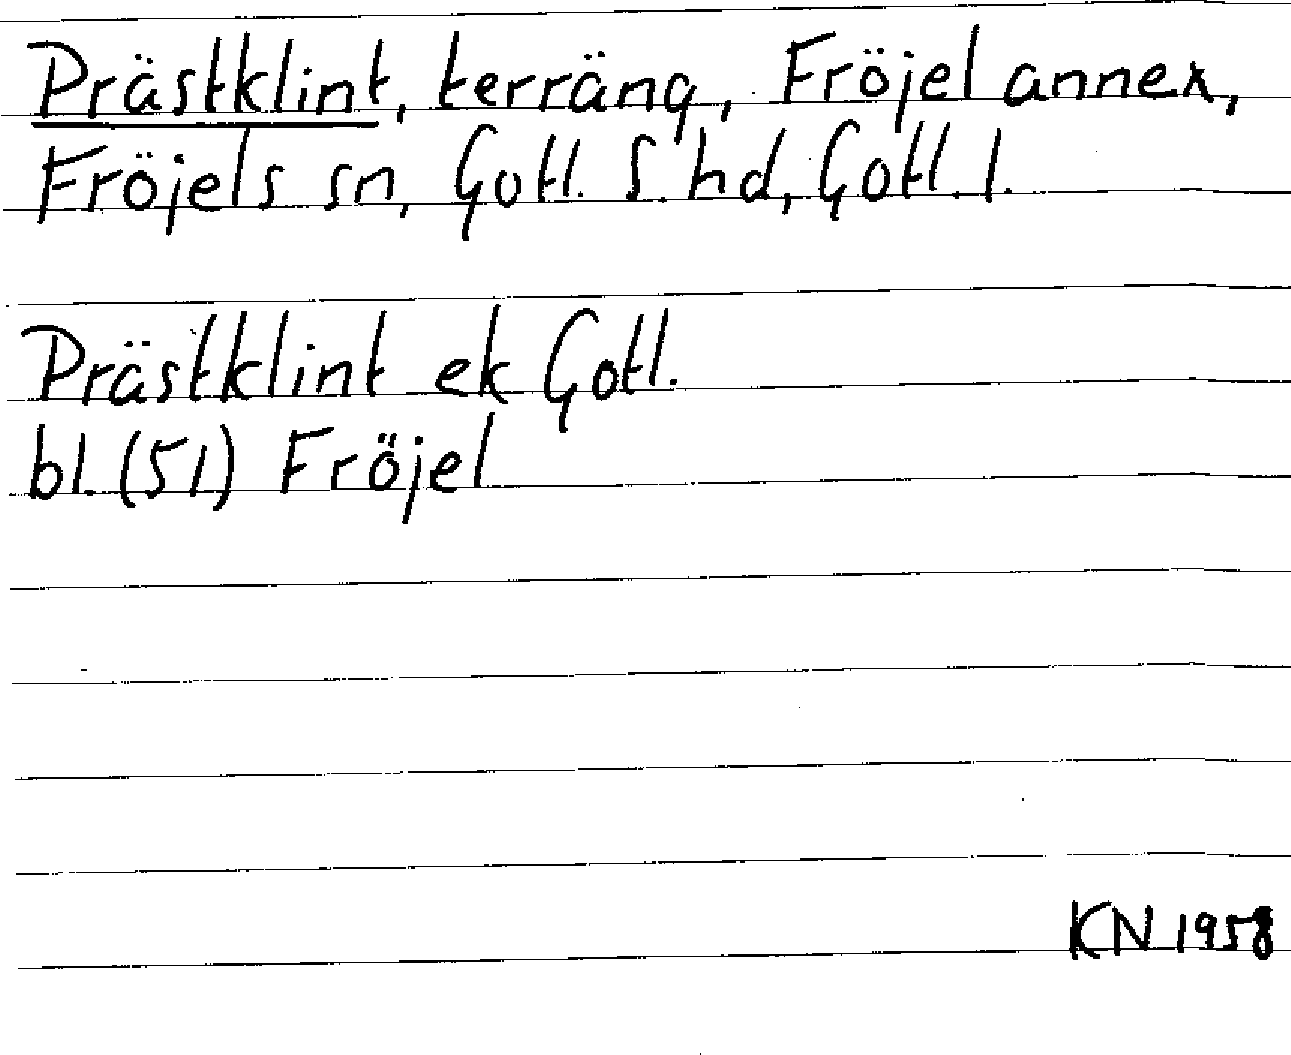 Prästklint, terräng, Fröjel annex,
Fröjels sn, Gotl. S. hd, Gotl. l.
Prästklint ek Gotl.
bl. (51) Fröjel
KN 1958